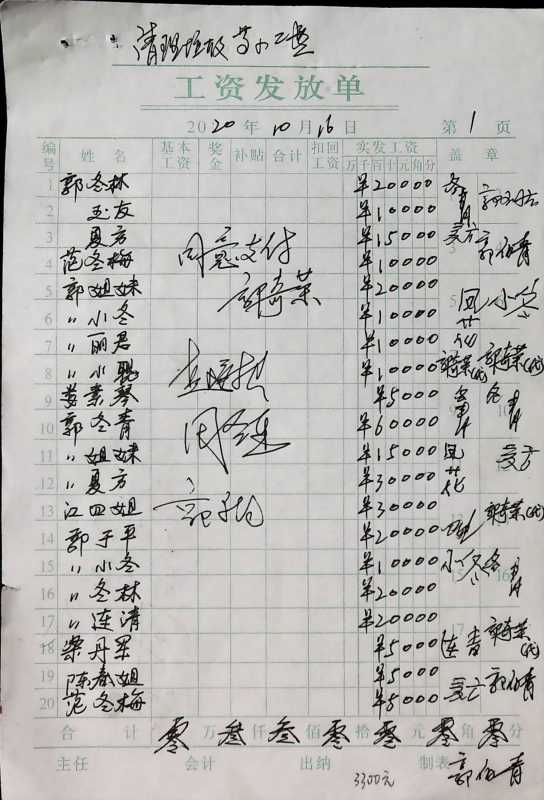 清理垃圾等小工费
工资发放单
2020年10月16日 第1页
编号 姓名 基本工资 奖金 补贴 合计 扣回工资 实发工资 万千百十元角分 盖章
1 郭冬林 ¥20000 冬青
2 玉友 ¥10000
3 夏方 ¥15000 夏方 郭伯青
4 范冬梅 同意支付 ¥10000
5 郭姐妹 郭奇荣 ¥20000 凤花 小冬
6 〃小冬 ¥10000
7 〃丽君 ¥10000
8 〃小聪 ¥10000 郭奇荣(代) 郭奇荣(代)
9 娄素琴 ¥5000 冬青 冬青
10 郭冬青 ¥60000
11 〃姐妹 ¥15000 凤花 夏方
12 〃夏方 ¥30000
13 江四姐 ¥30000 郭奇荣(代)
14 郭于平 ¥20000
15 〃小冬 ¥10000 小冬 冬青
16 〃冬林 ¥20000
17 〃连清 ¥20000
18 梁丹军 ¥5000 连青 郭奇荣(代)
19 陈春姐 ¥5000
20 范冬梅 ¥5000 夏方 郭伯青
合计 零万叁仟叁佰零拾零元零角零分
主任 会计 出纳 3300元 制表 郭伯青